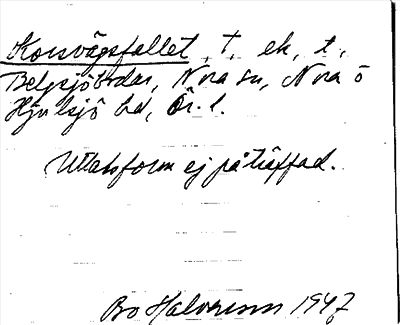 Korsvägsfallet, t, ek, t,
Belgsjöbodar, Nora sn, Nora o
Hjulsjö bd, Ör. l.
Uttalsform ej påträffad.
Bo Halvarsson 1947